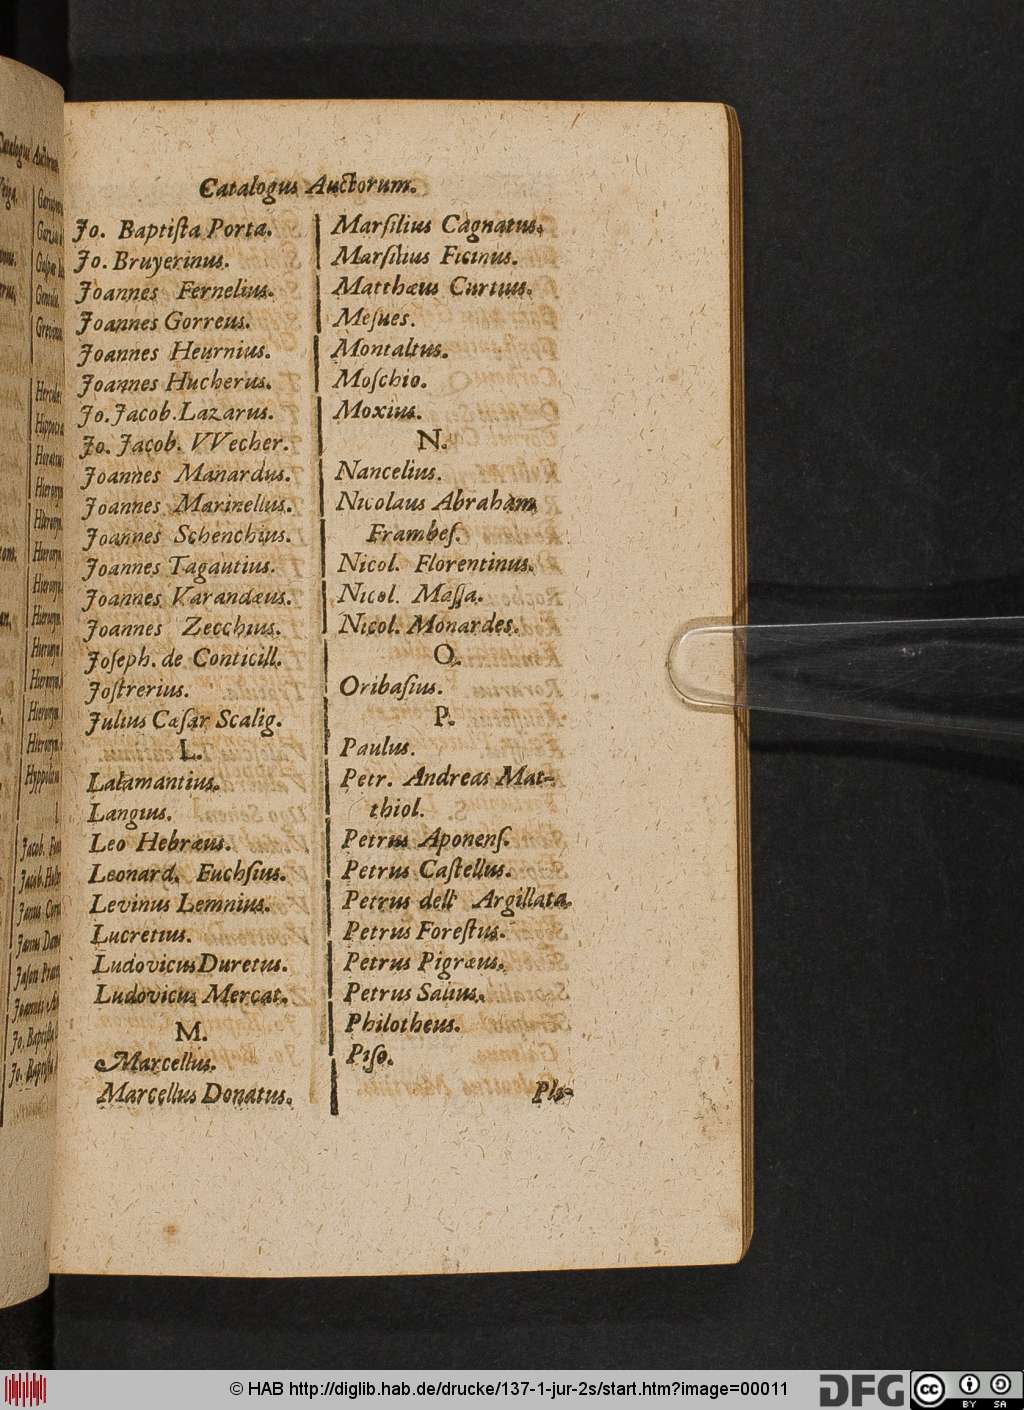 Catalogus Auctorum.
Jo. Baptiſta Porta.
Jo. Bruyerinus.
Joannes Fernelius.
Joannes Gorreus.
Joannes Heurnius.
Joannes Hucherus.
Jo. Jacob. Lazarus.
Jo. Jacob. VVecher.
Joannes Manardus.
Joannes Marinellus.
Joannes Schenchius.
Joannes Tagautius.
Joannes Varandæus.
Joannes Zecchius.
Joſeph. de Conticill.
Joſtrerius.
Julius Cæſar Scalig.
L.
Lalamantius.
Langius.
Leo Hebræus.
Leonard. Fuchſius.
Levinus Lemnius.
Lucretius.
Ludovicus Duretus.
Ludovicus Mercat.
M.
Marcellus.
Marcellus Donatus.
Marſilius Cagnatus.
Marſilius Ficinus.
Matthæus Curtius.
Meſues.
Montaltus.
Moſchio.
Moxius.
N.
Nancelius.
Nicolaus Abraham
Frambeſ.
Nicol. Florentinus.
Nicol. Maſſa.
Nicol. Monardes.
O.
Oribaſius.
P.
Paulus.
Petr. Andreas Mat-
thiol.
Petrus Aponenſ.
Petrus Caſtellus.
Petrus dell' Argillata.
Petrus Foreſtus.
Petrus Pigræus.
Petrus Salius.
Philotheus.
Piſo.
Pla-
© HAB http://diglib.hab.de/drucke/137-1-jur-2s/start.htm?image=00011
DFG
cc
BY SA